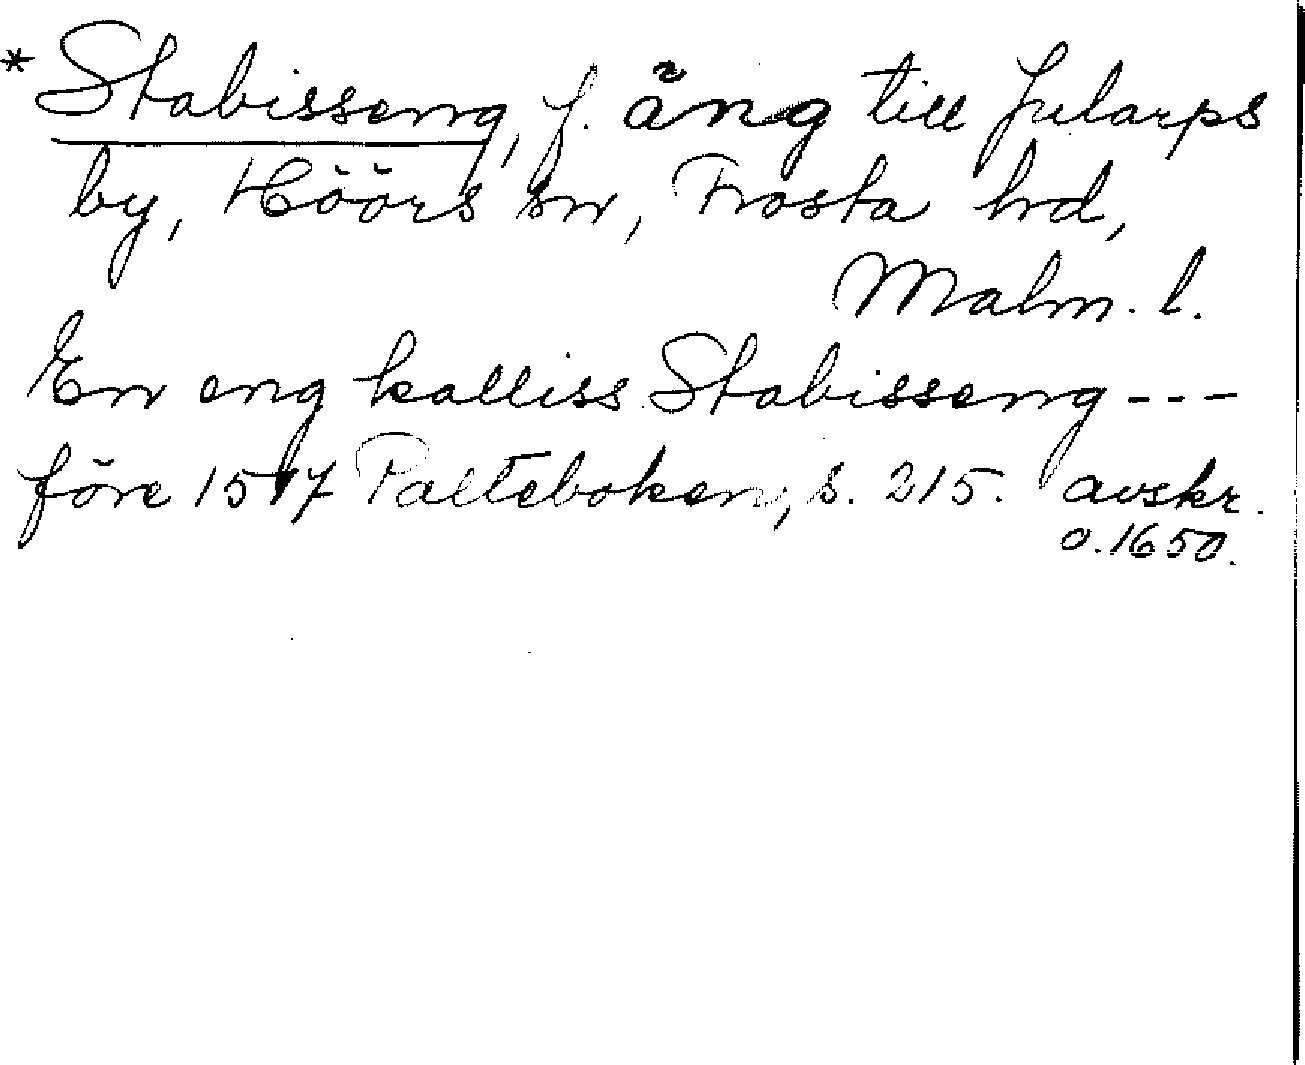 * Stabisseng, f. äng till Jularps
by, Höörs sn, Frosta hd,
Malm. l.
En eng kalliss Stabisseng ---
före 1517 Palteboken, s. 215. avskr.
o. 1650.